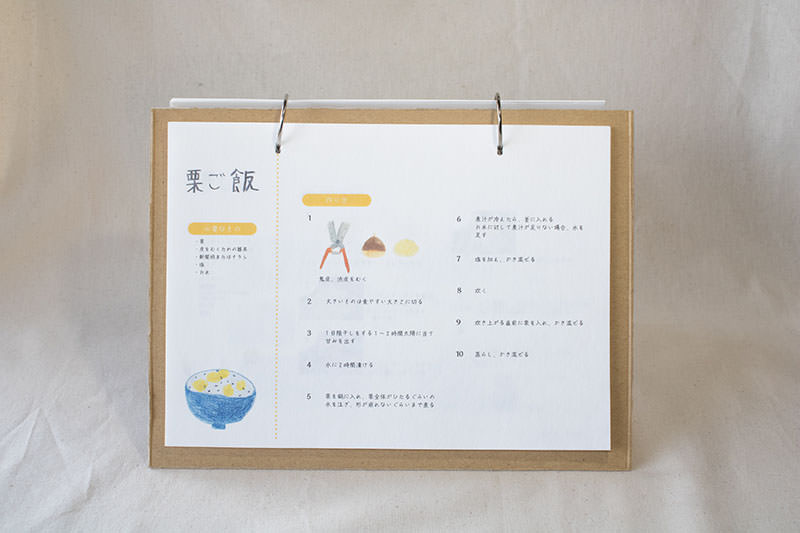 栗ご飯
必要なもの
・栗
・皮をむくための器具
・新聞紙またはチラシ
・塩
・お米
作り方
1
鬼皮、渋皮をむく
2 大きいものは食やすい大きさに切る
3 1日陰干しをする1〜2時間太陽に当て
甘みを出す
4 水に2時間漬ける
5 栗を鍋に入れ、栗全体がひたるぐらいの
水を注ぎ、形が崩れないぐらいまで煮る
6 煮汁が冷えたら、釜に入れる
お米に対して煮汁が足りない場合、水を
足す
7 塩を加え、かき混ぜる
8 炊く
9 炊き上がる直前に栗を入れ、かき混ぜる
10 蒸らし、かき混ぜる